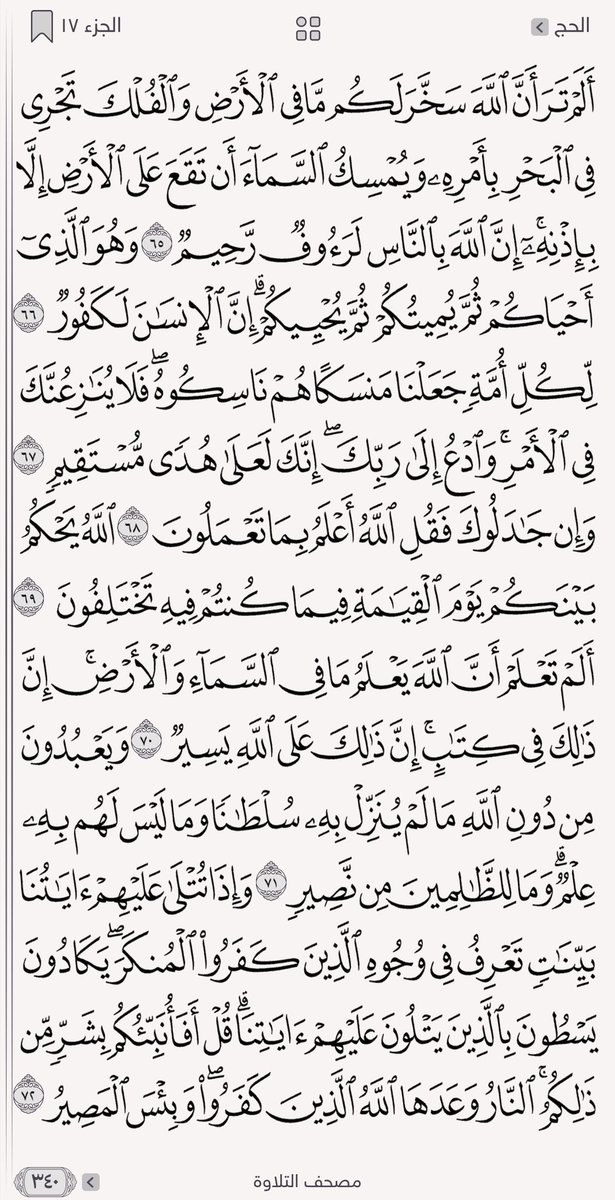 الحج
الجزء ١٧
أَلَمْ تَرَ أَنَّ ٱللَّهَ سَخَّرَ لَكُم مَّا فِى ٱلْأَرْضِ وَٱلْفُلْكَ تَجْرِى
فِى ٱلْبَحْرِ بِأَمْرِهِۦ وَيُمْسِكُ ٱلسَّمَآءَ أَن تَقَعَ عَلَى ٱلْأَرْضِ إِلَّا
بِإِذْنِهِۦٓ ۚ إِنَّ ٱللَّهَ بِٱلنَّاسِ لَرَءُوفٌ رَّحِيمٌ ٦٥ وَهُوَ ٱلَّذِىٓ
أَحْيَاكُمْ ثُمَّ يُمِيتُكُمْ ثُمَّ يُحْيِيكُمْ ۗ إِنَّ ٱلْإِنسَـٰنَ لَكَفُورٌ ٦٦
لِّكُلِّ أُمَّةٍ جَعَلْنَا مَنسَكًا هُمْ نَاسِكُوهُ ۖ فَلَا يُنَـٰزِعُنَّكَ
فِى ٱلْأَمْرِ ۚ وَٱدْعُ إِلَىٰ رَبِّكَ ۖ إِنَّكَ لَعَلَىٰ هُدًى مُّسْتَقِيمٍ ٦٧
وَإِن جَـٰدَلُوكَ فَقُلِ ٱللَّهُ أَعْلَمُ بِمَا تَعْمَلُونَ ٦٨ ٱللَّهُ يَحْكُمُ
بَيْنَكُمْ يَوْمَ ٱلْقِيَـٰمَةِ فِيمَا كُنتُمْ فِيهِ تَخْتَلِفُونَ ٦٩
أَلَمْ تَعْلَمْ أَنَّ ٱللَّهَ يَعْلَمُ مَا فِى ٱلسَّمَآءِ وَٱلْأَرْضِ ۚ إِنَّ
ذَٰلِكَ فِى كِتَـٰبٍ ۚ إِنَّ ذَٰلِكَ عَلَى ٱللَّهِ يَسِيرٌ ٧٠ وَيَعْبُدُونَ
مِن دُونِ ٱللَّهِ مَا لَمْ يُنَزِّلْ بِهِۦ سُلْطَـٰنًا وَمَا لَيْسَ لَهُم بِهِۦ
عِلْمٌ ۗ وَمَا لِلظَّـٰلِمِينَ مِن نَّصِيرٍ ٧١ وَإِذَا تُتْلَىٰ عَلَيْهِمْ ءَايَـٰتُنَا
بَيِّنَـٰتٍ تَعْرِفُ فِى وُجُوهِ ٱلَّذِينَ كَفَرُوا۟ ٱلْمُنكَرَ ۖ يَكَادُونَ
يَسْطُونَ بِٱلَّذِينَ يَتْلُونَ عَلَيْهِمْ ءَايَـٰتِنَا ۗ قُلْ أَفَأُنَبِّئُكُم بِشَرٍّ مِّن
ذَٰلِكُمُ ۚ ٱلنَّارُ وَعَدَهَا ٱللَّهُ ٱلَّذِينَ كَفَرُوا۟ ۖ وَبِئْسَ ٱلْمَصِيرُ ٧٢
مصحف التلاوة
٣٤٠